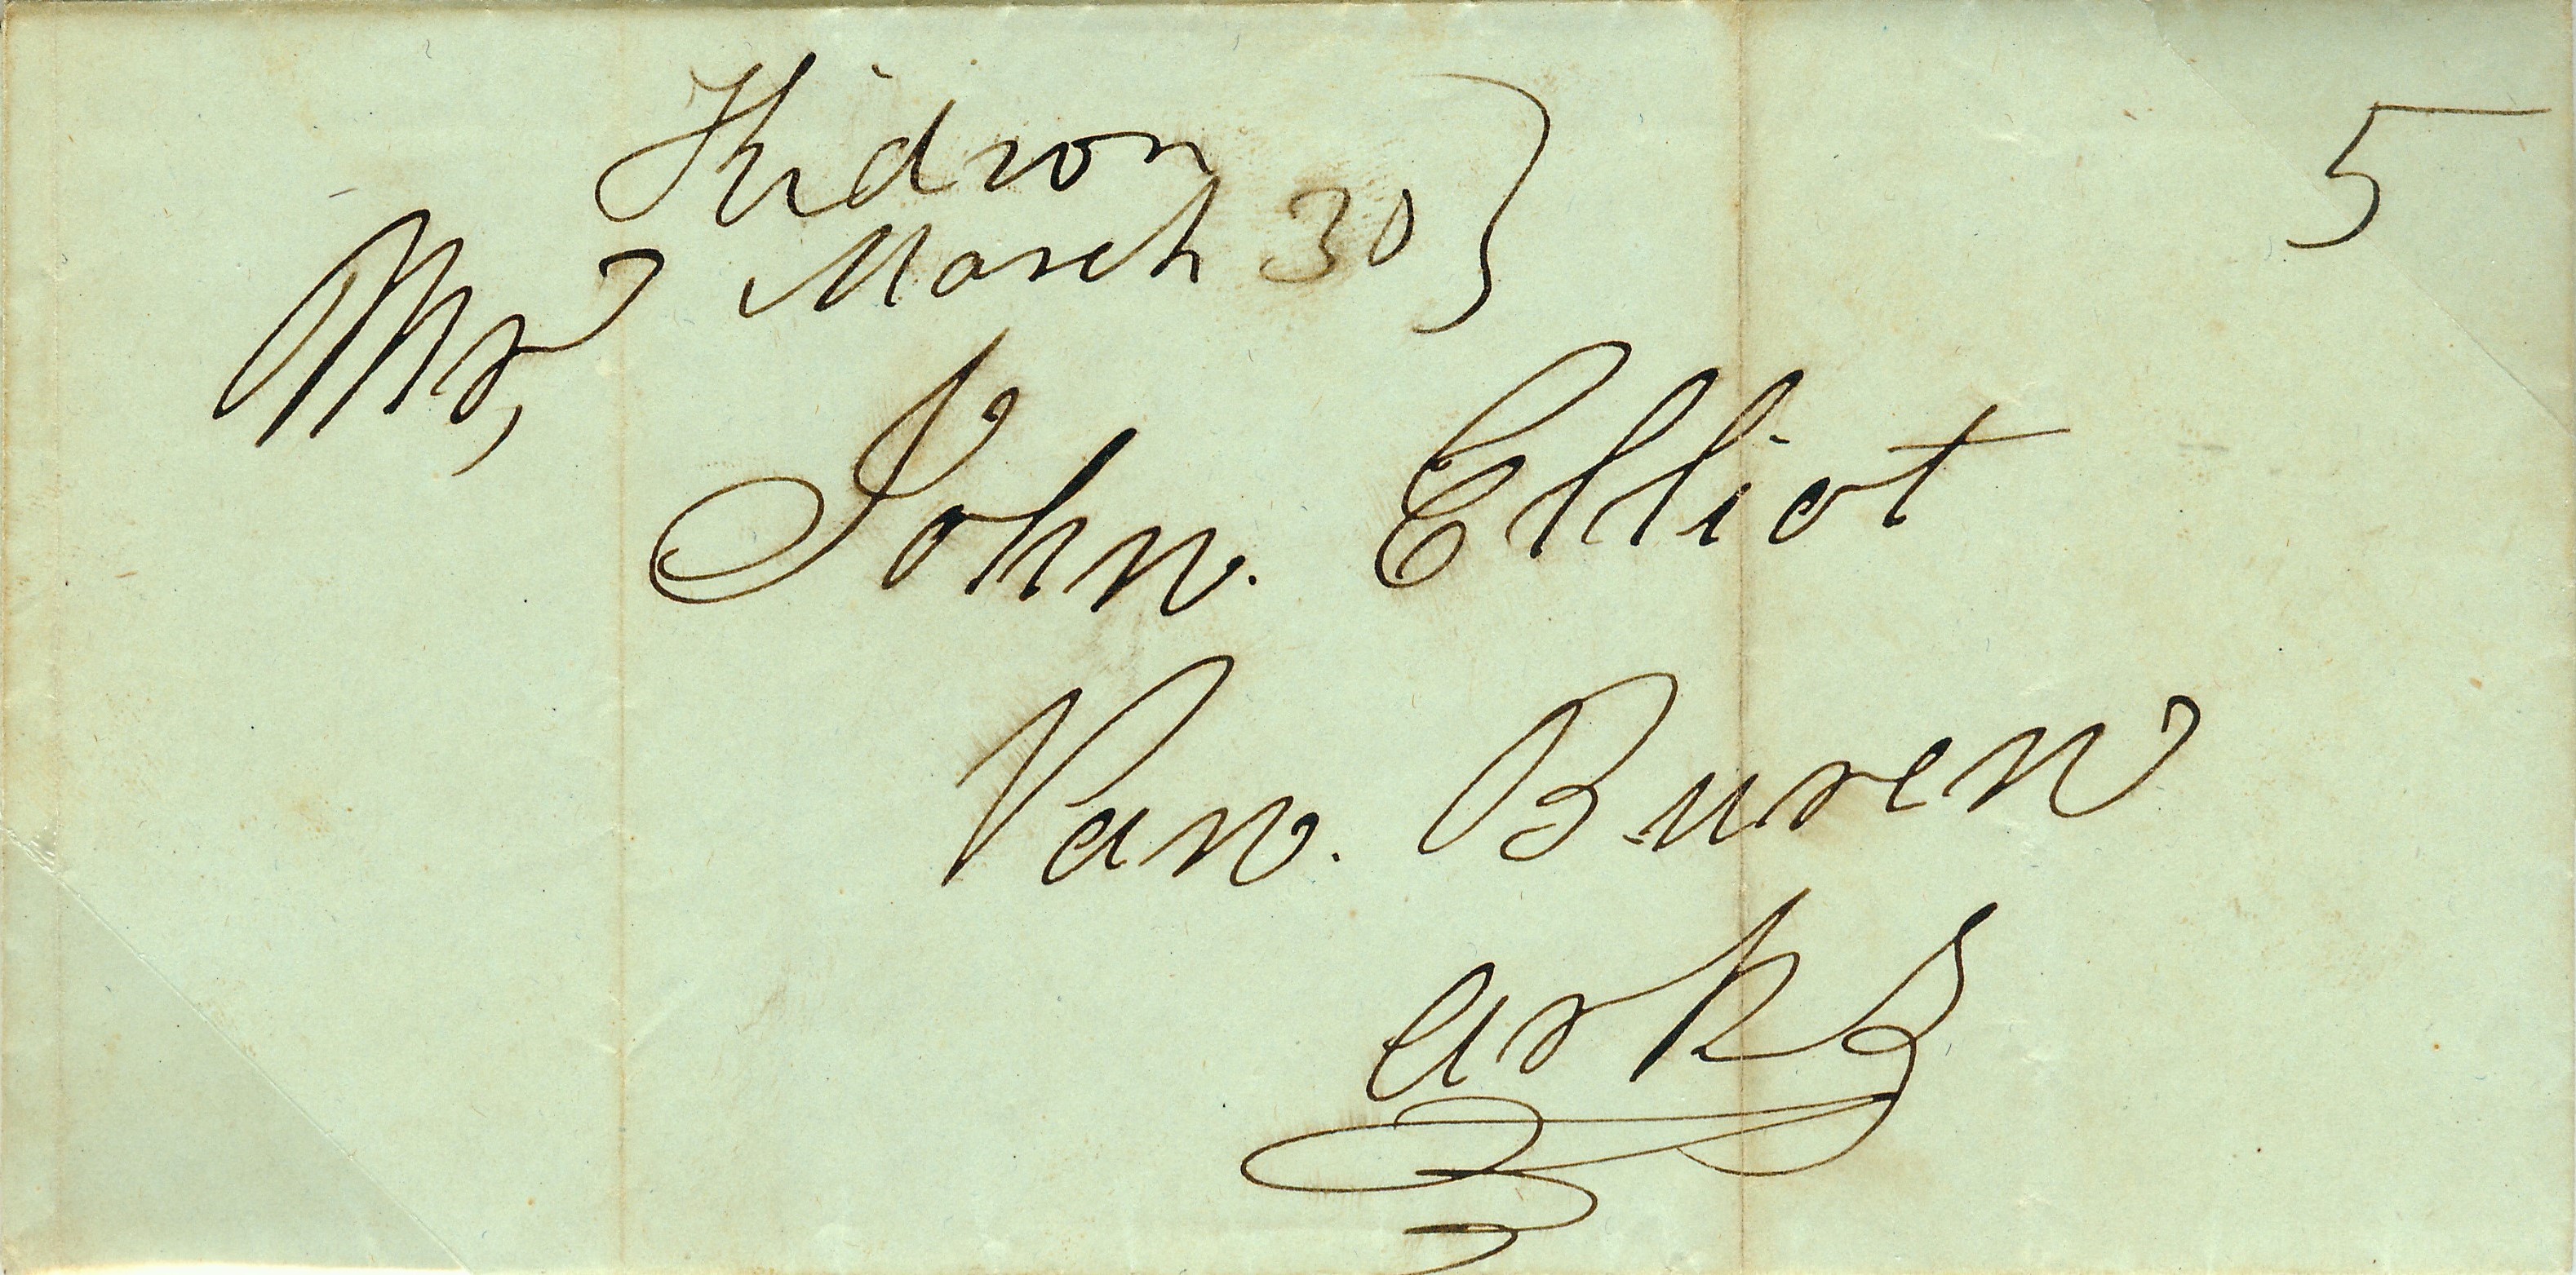 Kidron
March 30
5
Mr,
John. Elliot
Van. Buren
arks